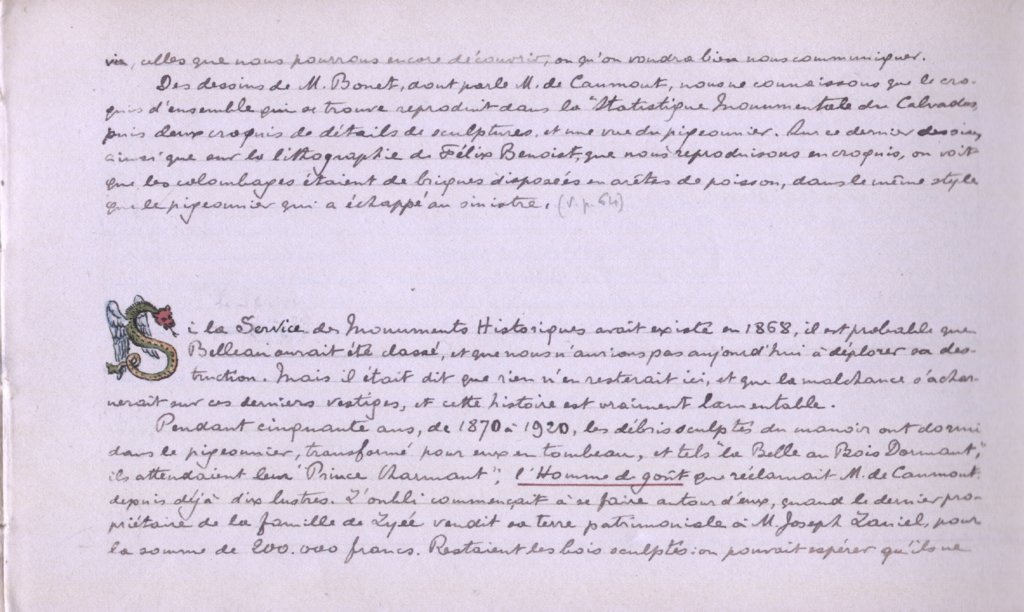 via, celles que nous pourrons encore découvrir, ou qu'on voudra bien nous communiquer.
Des dessins de M. Bonet, dont parle M. de Caumont, nous ne connaissons que le cro-
quis d'ensemble qui se trouve reproduit dans la "Statistique Monumentale du Calvados,
puis deux croquis de détails de sculptures, et une vue du pigeonnier. Sur ce dernier dessin,
ainsi que sur la lithographie de Félix Benoist, que nous reproduisons en croquis, on voit
que les colombages étaient de briques disposées en arêtes de poisson, dans le même style
que le pigeonnier qui a échappé au sinistre. (V. p. 64)
Si la Service des Monuments Historiques avait existé en 1868, il est probable que
Belleau aurait été classé, et que nous n'aurions pas aujourd'hui à déplorer sa des-
truction. Mais il était dit que rien n'en resterait ici, et que la malchance s'achar-
nerait sur ces derniers vestiges, et cette histoire est vraiment lamentable.
Pendant cinquante ans, de 1870 à 1920, les débris sculptés du manoir ont dormi
dans le pigeonnier, transformé pour eux en tombeau, et tels "la Belle au Bois Dormant",
ils attendaient leur "Prince Charmant", l'Homme de goût que réclamait M. de Caumont
depuis déjà dix lustres. L'oubli commençait à se faire autour d'eux, quand le dernier pro-
priétaire de la famille de Lyée vendit sa terre patrimoniale à M. Joseph Laniel, pour
la somme de 200.000 francs. Restaient les bois sculptés: on pouvait espérer qu'ils ne